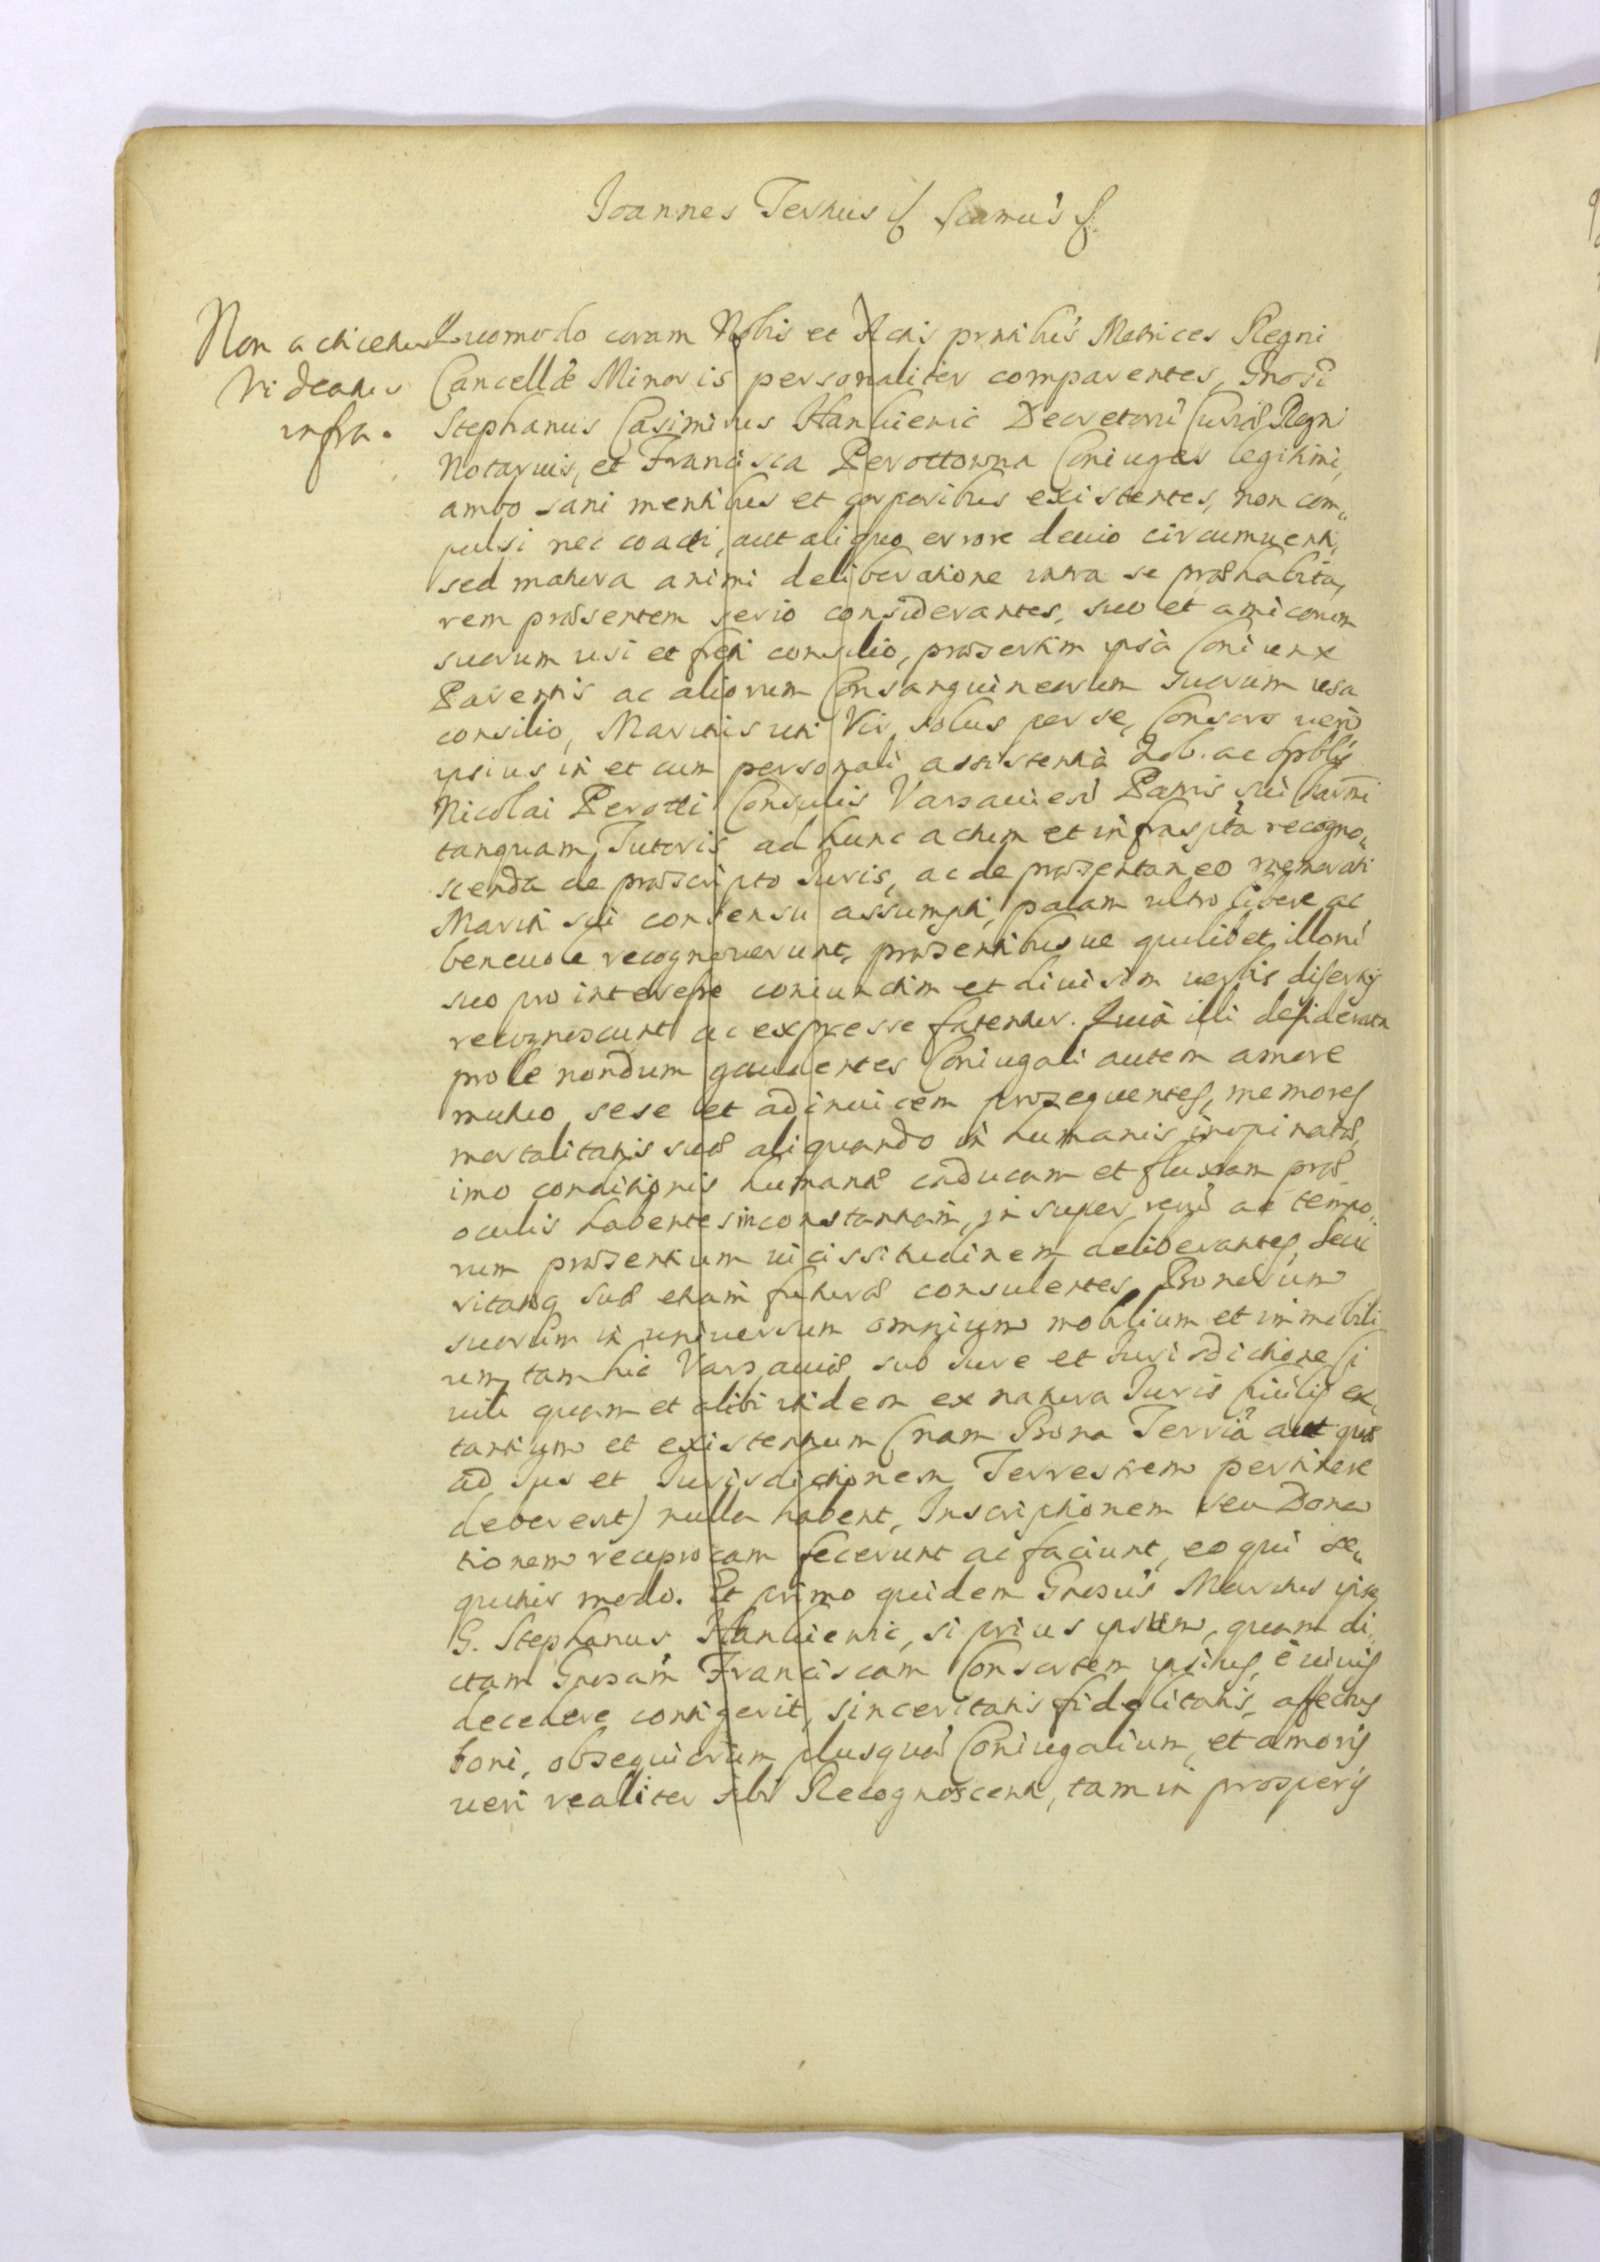 Joannes Tertius &c Seamus &c.
Non adticetur
Videatur
infra.
Quomodo coram Nobis et Actis pnntibus Metrices Regni
Cancellæ Minoris personaliter comparentes, Gnosi
Stephanus Casimirus Hankiewic Decretorũ Curiæ Regni
Notarius, et Francisca Perottowna Coniuges legitimi,
ambo sani mentibus et corporibus existentes, non com„
pulsi nec coacti, aut aliquo errore deuio circumuenti,
sed matura animi deliberatione intra se præhabita,
rem præsentem serio considerantes, suo et amicorum
suorum usi et freti consilio, præsertim ipsa Coniunx
Parentis ac aliorum Consanguineorum suorum usa
consilio, Maritus uti Vir solus per se, Consors verò
ipsius in et cum personali assistentia Nob. ac Spblis
Nicolai Perotti Consulis Varsauien Patris sui Charmi
tanquam Tutoris ad hunc actum et infrascpta recogno„
scenda de præscripto Juris, ac de præsentaneo memorati
Mariti sui consensu assumpti, palam ultro libere ac
beneuole recognouerunt, præsentibusue quilibet illorũ
suo pro interesse coniunctim et diuisim uerbis disertis
recognoscunt ac expresse fatentur. Quia illi desiderata
prole nondum gaudentes Coniugali autem amore
mutuo sese et adinuicem prosequentes, memores
mortalitatis suæ aliquando in humanis inopinatæ,
imo conditionis humanæ caducam et fluxam præ
oculis habentes inconstantiam, insuper rerũ ac tempo„
rum præsentium uicissitudinem deliberantes, Secu
ritatiq suæ etiam futuræ consulentes, Bonorum
suorum in universum omnium mobilium et immobili
um, tam hic Varsauiæ sub Jure et Jurisdictione Ci
uili quam et alibi itidem ex natura Juris Ciuilis ex„
tantium et existentium (nam Bona Terria aut quæ
ad Jus et Jurisdictionem Terrestrem pertinere
deberent) nulla habent, Inscriptionem seu Dona
tionem reciprocam fecerunt ac faciunt, eo qui se„
quitur modo. Et primo quidem Gnosus Maritus ipse
G. Stephanus Hankiewic, si prius ipsum, quam di„
ctam Gnosam Franciscam Consortem ipsius, è uiuis
decedere contigerit, sinceritatis fidelitatis, affectus
boni, obsequiorum plusquã Coniugalium, et amoris
ueri realiter sibi Recognoscenti, tam in prosperis